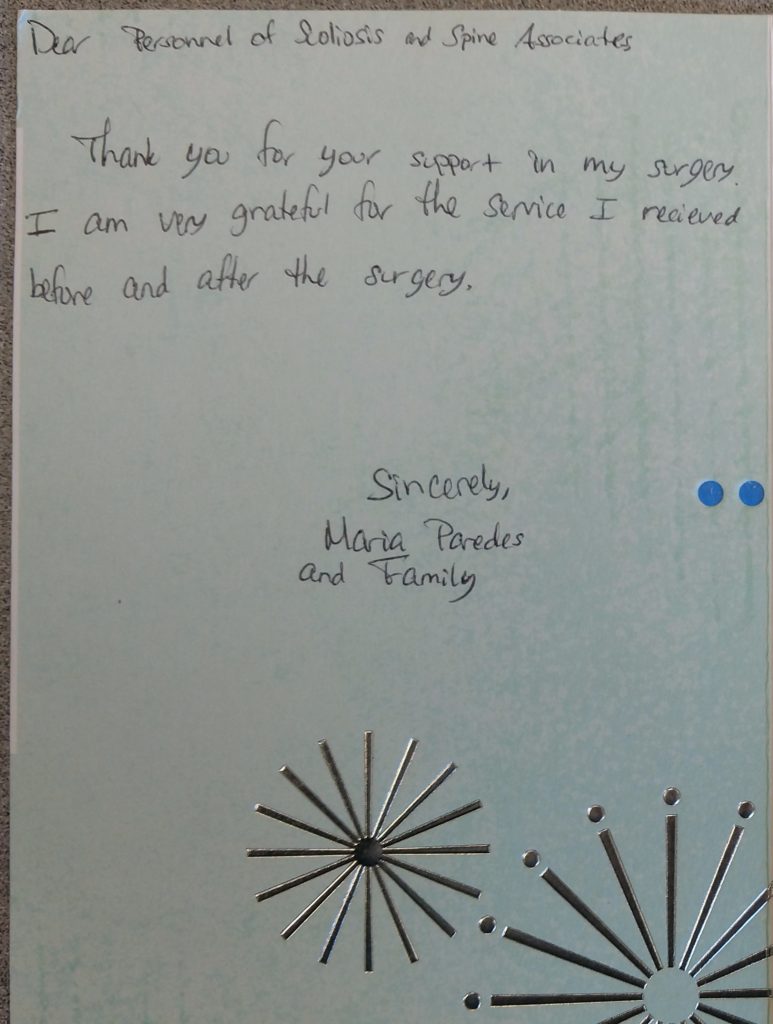 Dear Personnel of Scoliosis and Spine Associates
Thank you for your support in my surgery.
I am very grateful for the service I recieved
before and after the surgery.
Sincerely,
Maria Paredes
and Family